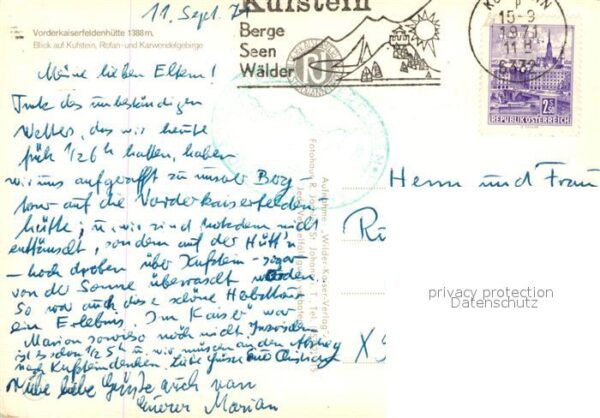 11. Sept. 71
Vorderkaiserfeldenhütte 1388 m,
Blick auf Kufstein, Rofan- und Karwendelgebirge
Kufstein
Berge
Seen
Wälder
15-9
1971
11
6332
2S
REPUBLIK ÖSTERREICH
Meine lieben Eltern!
Trotz des unbeständigen
Wetters, das wir heute
früh 1/2 6h hatten, haben
wir uns aufgerafft zu unserer Berg-
tour auf die Vorderkaiserfelden
hütte; u. wir sind trotzdem nicht
enttäuscht, sondern auf der Hütt'n
- hoch droben über Kufstein - sogar
von der Sonne überrascht worden.
So war auch diese schöne Herbsttour
ein Erlebnis. Im "Kaiser" war
Marion sowieso noch nicht. Inzwischen
ist es schon 1/2 5h u. wir müssen an den Abstieg
nach Kufstein denken. Liebe Grüsse Eure
liebe Grüße auch von
Eurer Marian
Aufnahme „Wilder-Kaiser-Verlag"
Fotohaus R. Jöchler, St. Johann i. T., Tel.
Herrn und Frau
privacy protection
Datenschutz